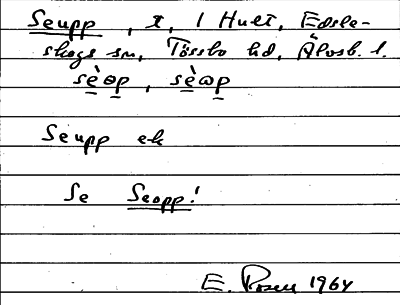 Seupp, t, 1 Hult, Edsle-
skogs sn, Tössbo hd, Älvsb. l.
sèɵp, sèɷp
Seupp ek
Se Seopp!
E. Rosell 1964